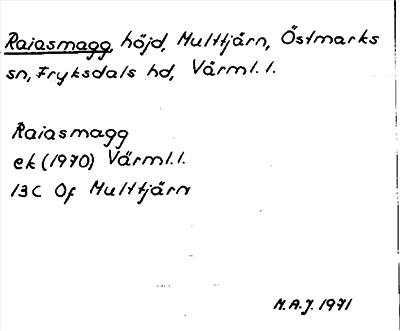 Raiasmagg höjd, Multtjärn, Östmarks
sn, Fryksdals hd, Värml. l.
Raiasmagg
ek (1970) Värml. l.
13C 0f Multtjärn
M.A.J. 1971